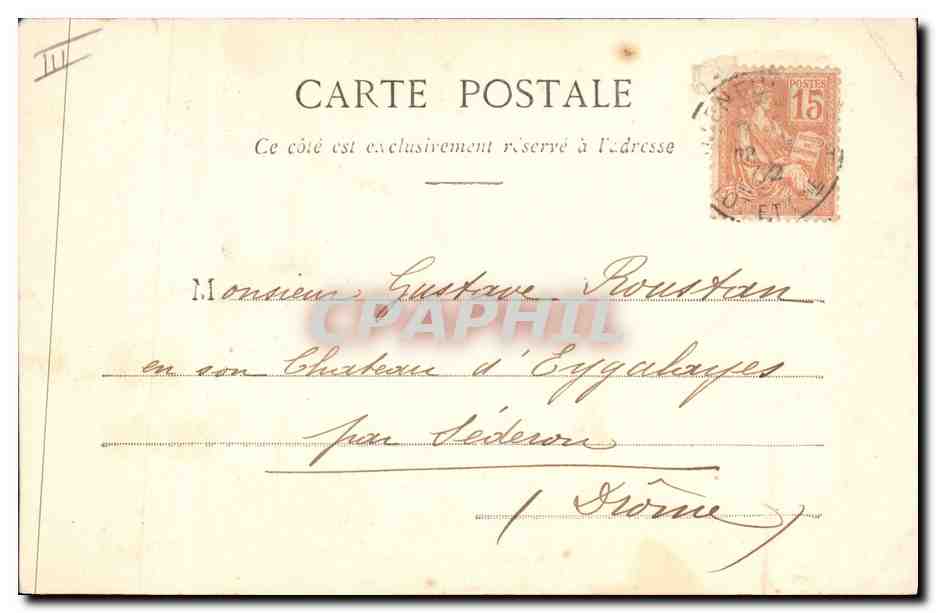 III
CARTE POSTALE
Ce côté est exclusivement réservé à l'adresse
POSTES
15
LOT ET
02
Monsieur Gustave Roustan
CPAPHIL
en son Chateau d'Eygalayes
par Séderon
(Drôme)